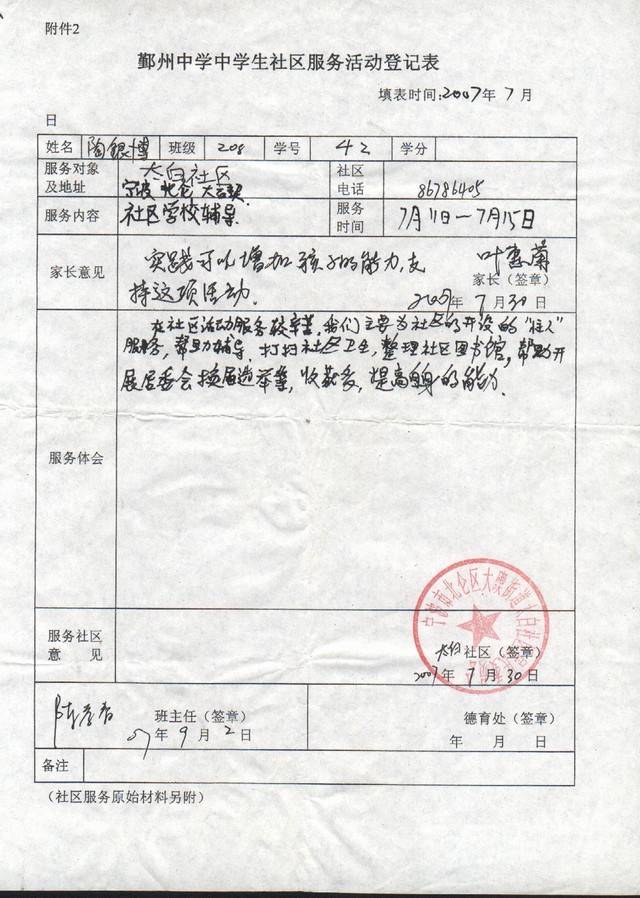 附件2
鄞州中学中学生社区服务活动登记表
填表时间:2007年 7月
日
姓名 陶银博 班级 208 学号 42 学分
服务对象及地址 太白社区 宁波 北仑 大碶 社区电话 86786405
服务内容 社区学校辅导 服务时间 7月11日—7月15日
家长意见 实践可以增加孩子的能力,支
持这项活动.
叶惠菊
家长(签章)
2007年 7月30日
服务体会 在社区活动服务较辛苦,我们主要为社区的开设的
服务,帮助辅导.打扫社区卫生,整理社区图书馆,帮助开
展居委会换届选举等,收获多,提高自身的能力.
服务社区意见
宁波市北仑区大碶街道太白社区
社区(签章)
2007年 7月30日
班主任(签章)
07年 9月 2日
德育处(签章)
年 月 日
备注
(社区服务原始材料另附)